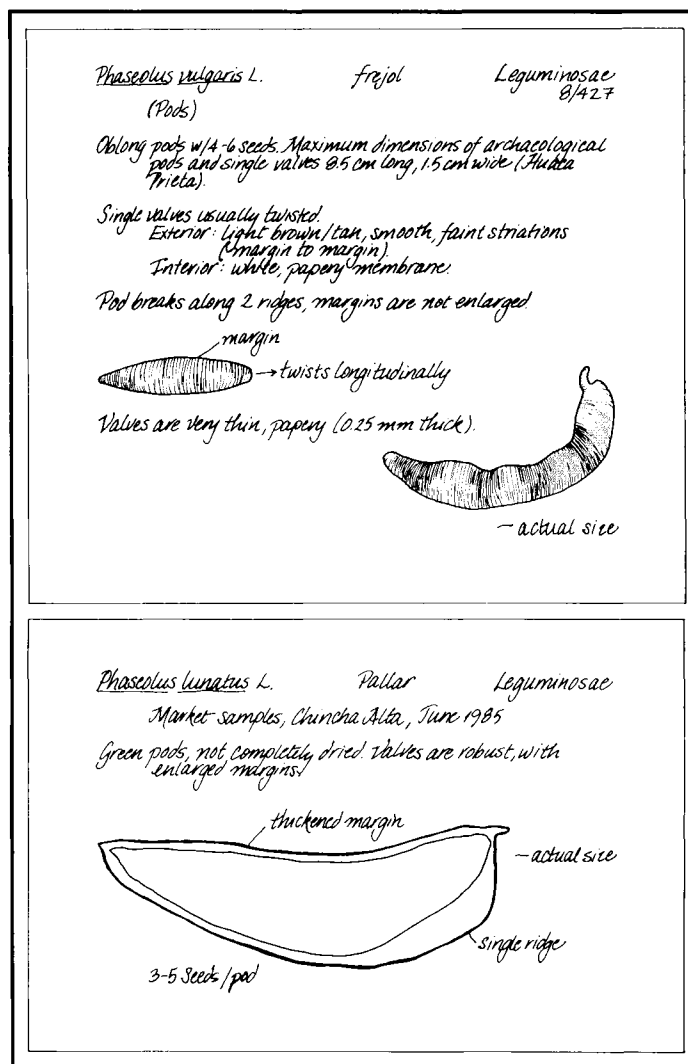 Phaseolus vulgaris L. frejol Leguminosae
8/427
(Pods)
Oblong pods w/4-6 seeds. Maximum dimensions of archaeological
pods and single valves 8.5 cm long, 1.5 cm wide (Huaca
Prieta).
Single valves usually twisted.
Exterior: light brown/tan, smooth, faint striations
(margin to margin).
Interior: white, papery membrane.
Pod breaks along 2 ridges, margins are not enlarged.
margin
→ twists longitudinally
Valves are very thin, papery (0.25 mm thick).
- actual size
Phaseolus lunatus L. Pallar Leguminosae
Market samples, Chincha Alta, June 1985
Green pods, not completely dried. Valves are robust, with
enlarged margins.
thickened margin
- actual size
single ridge
3-5 Seeds/pod